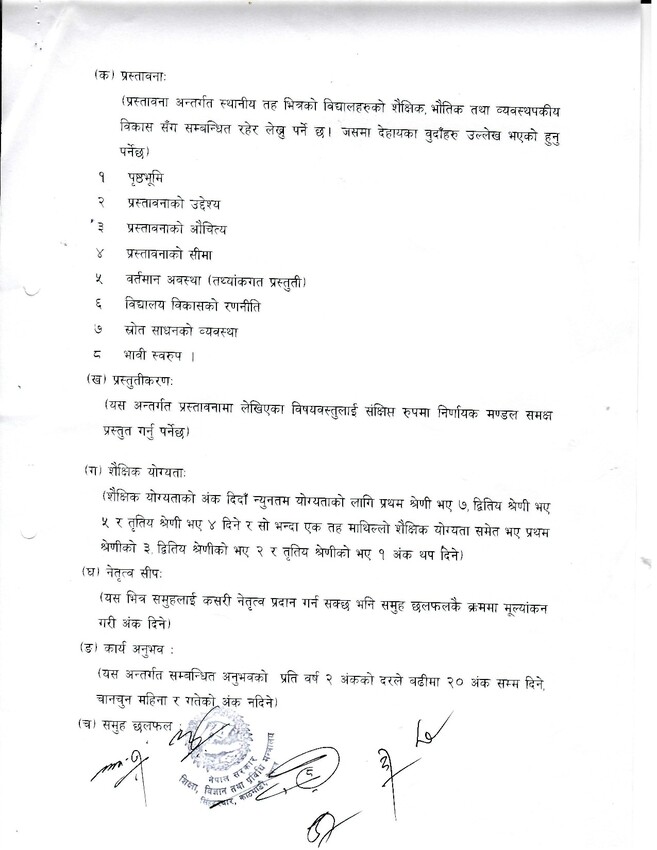 (क) प्रस्तावनाः
(प्रस्तावना अन्तर्गत स्थानीय तह भित्रको विद्यालहरुको शैक्षिक, भौतिक तथा व्यवस्थपकीय
विकास सँग सम्बन्धित रहेर लेख्नु पर्ने छ। जसमा देहायका वुदाँहरु उल्लेख भएको हुनु
पर्नेछ)
१ पृष्ठभूमि
२ प्रस्तावनाको उद्देश्य
३ प्रस्तावनाको औचित्य
४ प्रस्तावनाको सीमा
५ वर्तमान अवस्था (तथ्यांकगत प्रस्तुती)
६ विद्यालय विकासको रणनीति
७ स्रोत साधनको व्यवस्था
८ भावी स्वरुप ।
(ख) प्रस्तुतीकरणः
(यस अन्तर्गत प्रस्तावनामा लेखिएका विषयवस्तुलाई संक्षिप्त रुपमा निर्णायक मण्डल समक्ष
प्रस्तुत गर्नु पर्नेछ)
(ग) शैक्षिक योग्यताः
(शैक्षिक योग्यताको अंक दिदाँ न्युनतम योग्यताको लागि प्रथम श्रेणी भए ७, द्वितिय श्रेणी भए
५ र तृतिय श्रेणी भए ४ दिने र सो भन्दा एक तह माथिल्लो शैक्षिक योग्यता समेत भए प्रथम
श्रेणीको ३, द्वितिय श्रेणीको भए २ र तृतिय श्रेणीको भए १ अंक थप दिने)
(घ) नेतृत्व सीपः
(यस भित्र समुहलाई कसरी नेतृत्व प्रदान गर्न सक्छ भनि समुह छलफलकै क्रममा मूल्यांकन
गरी अंक दिने)
(ङ) कार्य अनुभव :
(यस अन्तर्गत सम्बन्धित अनुभवको प्रति वर्ष २ अंकको दरले वढीमा २० अंक सम्म दिने,
चानचुन महिना र गतेको अंक नदिने)
(च) समुह छलफल
नेपाल सरकार
शिक्षा, विज्ञान तथा प्रविधि मन्त्रालय